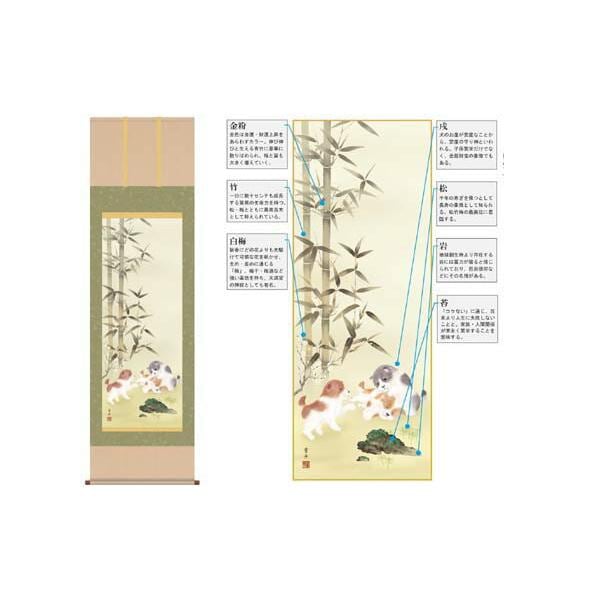 金粉
金色は金運・財運上昇を
あらわすカラー。伸び伸
びと生える青竹に豪華に
散りばめられ、福と富も
大きく蓄えていく。
竹
一日に数十センチも成長
する驚異の生命力を持つ。
松・梅とともに最高吉木
として称えられている。
白梅
新春にどの花よりも先駆
けて可憐な花を咲かせ、
生め・産めに通じる
「梅」。梅干・梅酒など
強い薬効を持ち、天満宮
の神紋としても有名。
戌
犬のお産が安産なことか
ら、安産の守り神といわ
れる。子孫繁栄だけでな
く、金銀財宝の象徴でも
ある。
松
千年の寿ぎを保つとして
長寿の象徴として知られ
る。松竹梅の最高位に君
臨する。
岩
地球創生時より存在する
岩には霊力が宿ると信じ
られており、岩出信仰など
にその名残がある。
苔
「コケない」に通じ、古
来より人生に失敗しない
ことと、家族・人間関係
が末永く繁栄することを
意味する。